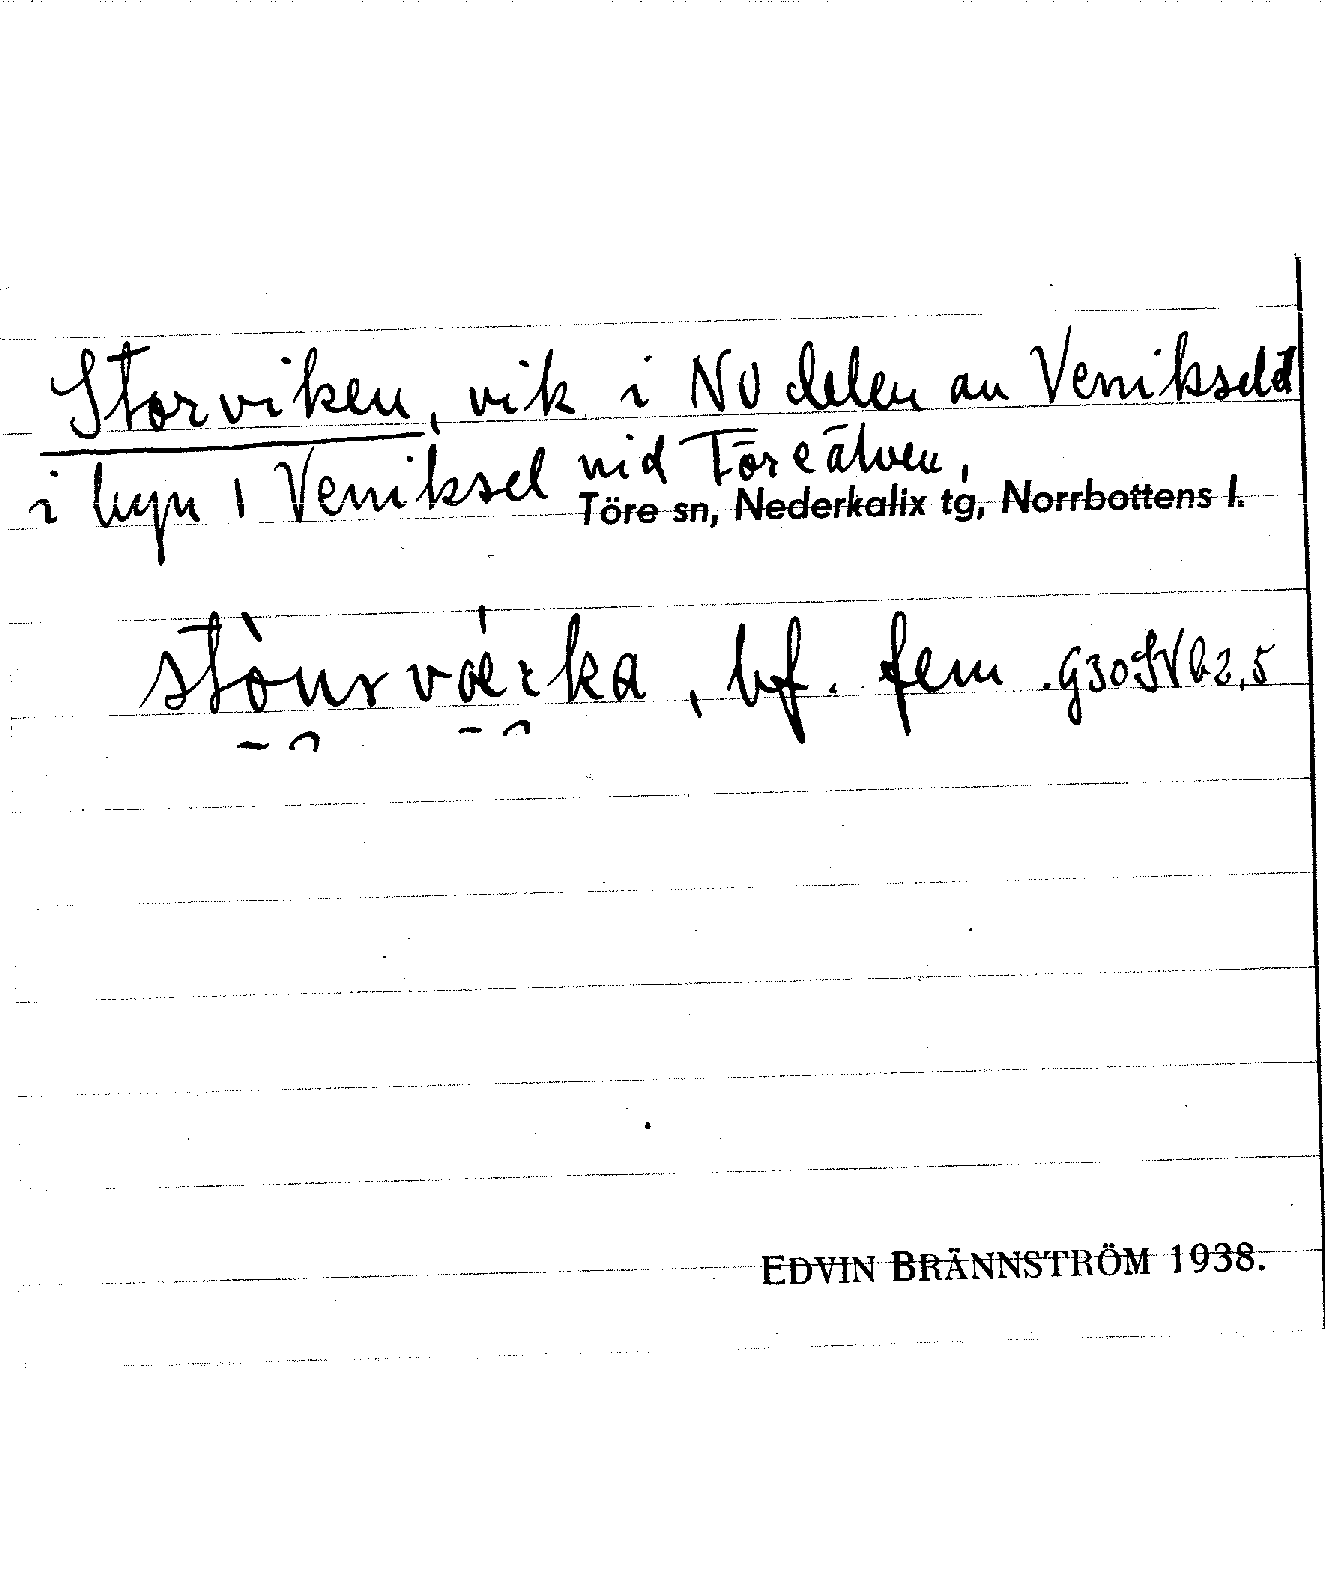 Storviken, vik i NO delen av Vemikselet
i byn Vemiksel vid Töreälven,
Töre sn, Nederkalix tg, Norrbottens l.
bf. fem.
EDVIN BRÄNNSTRÖM 1938.